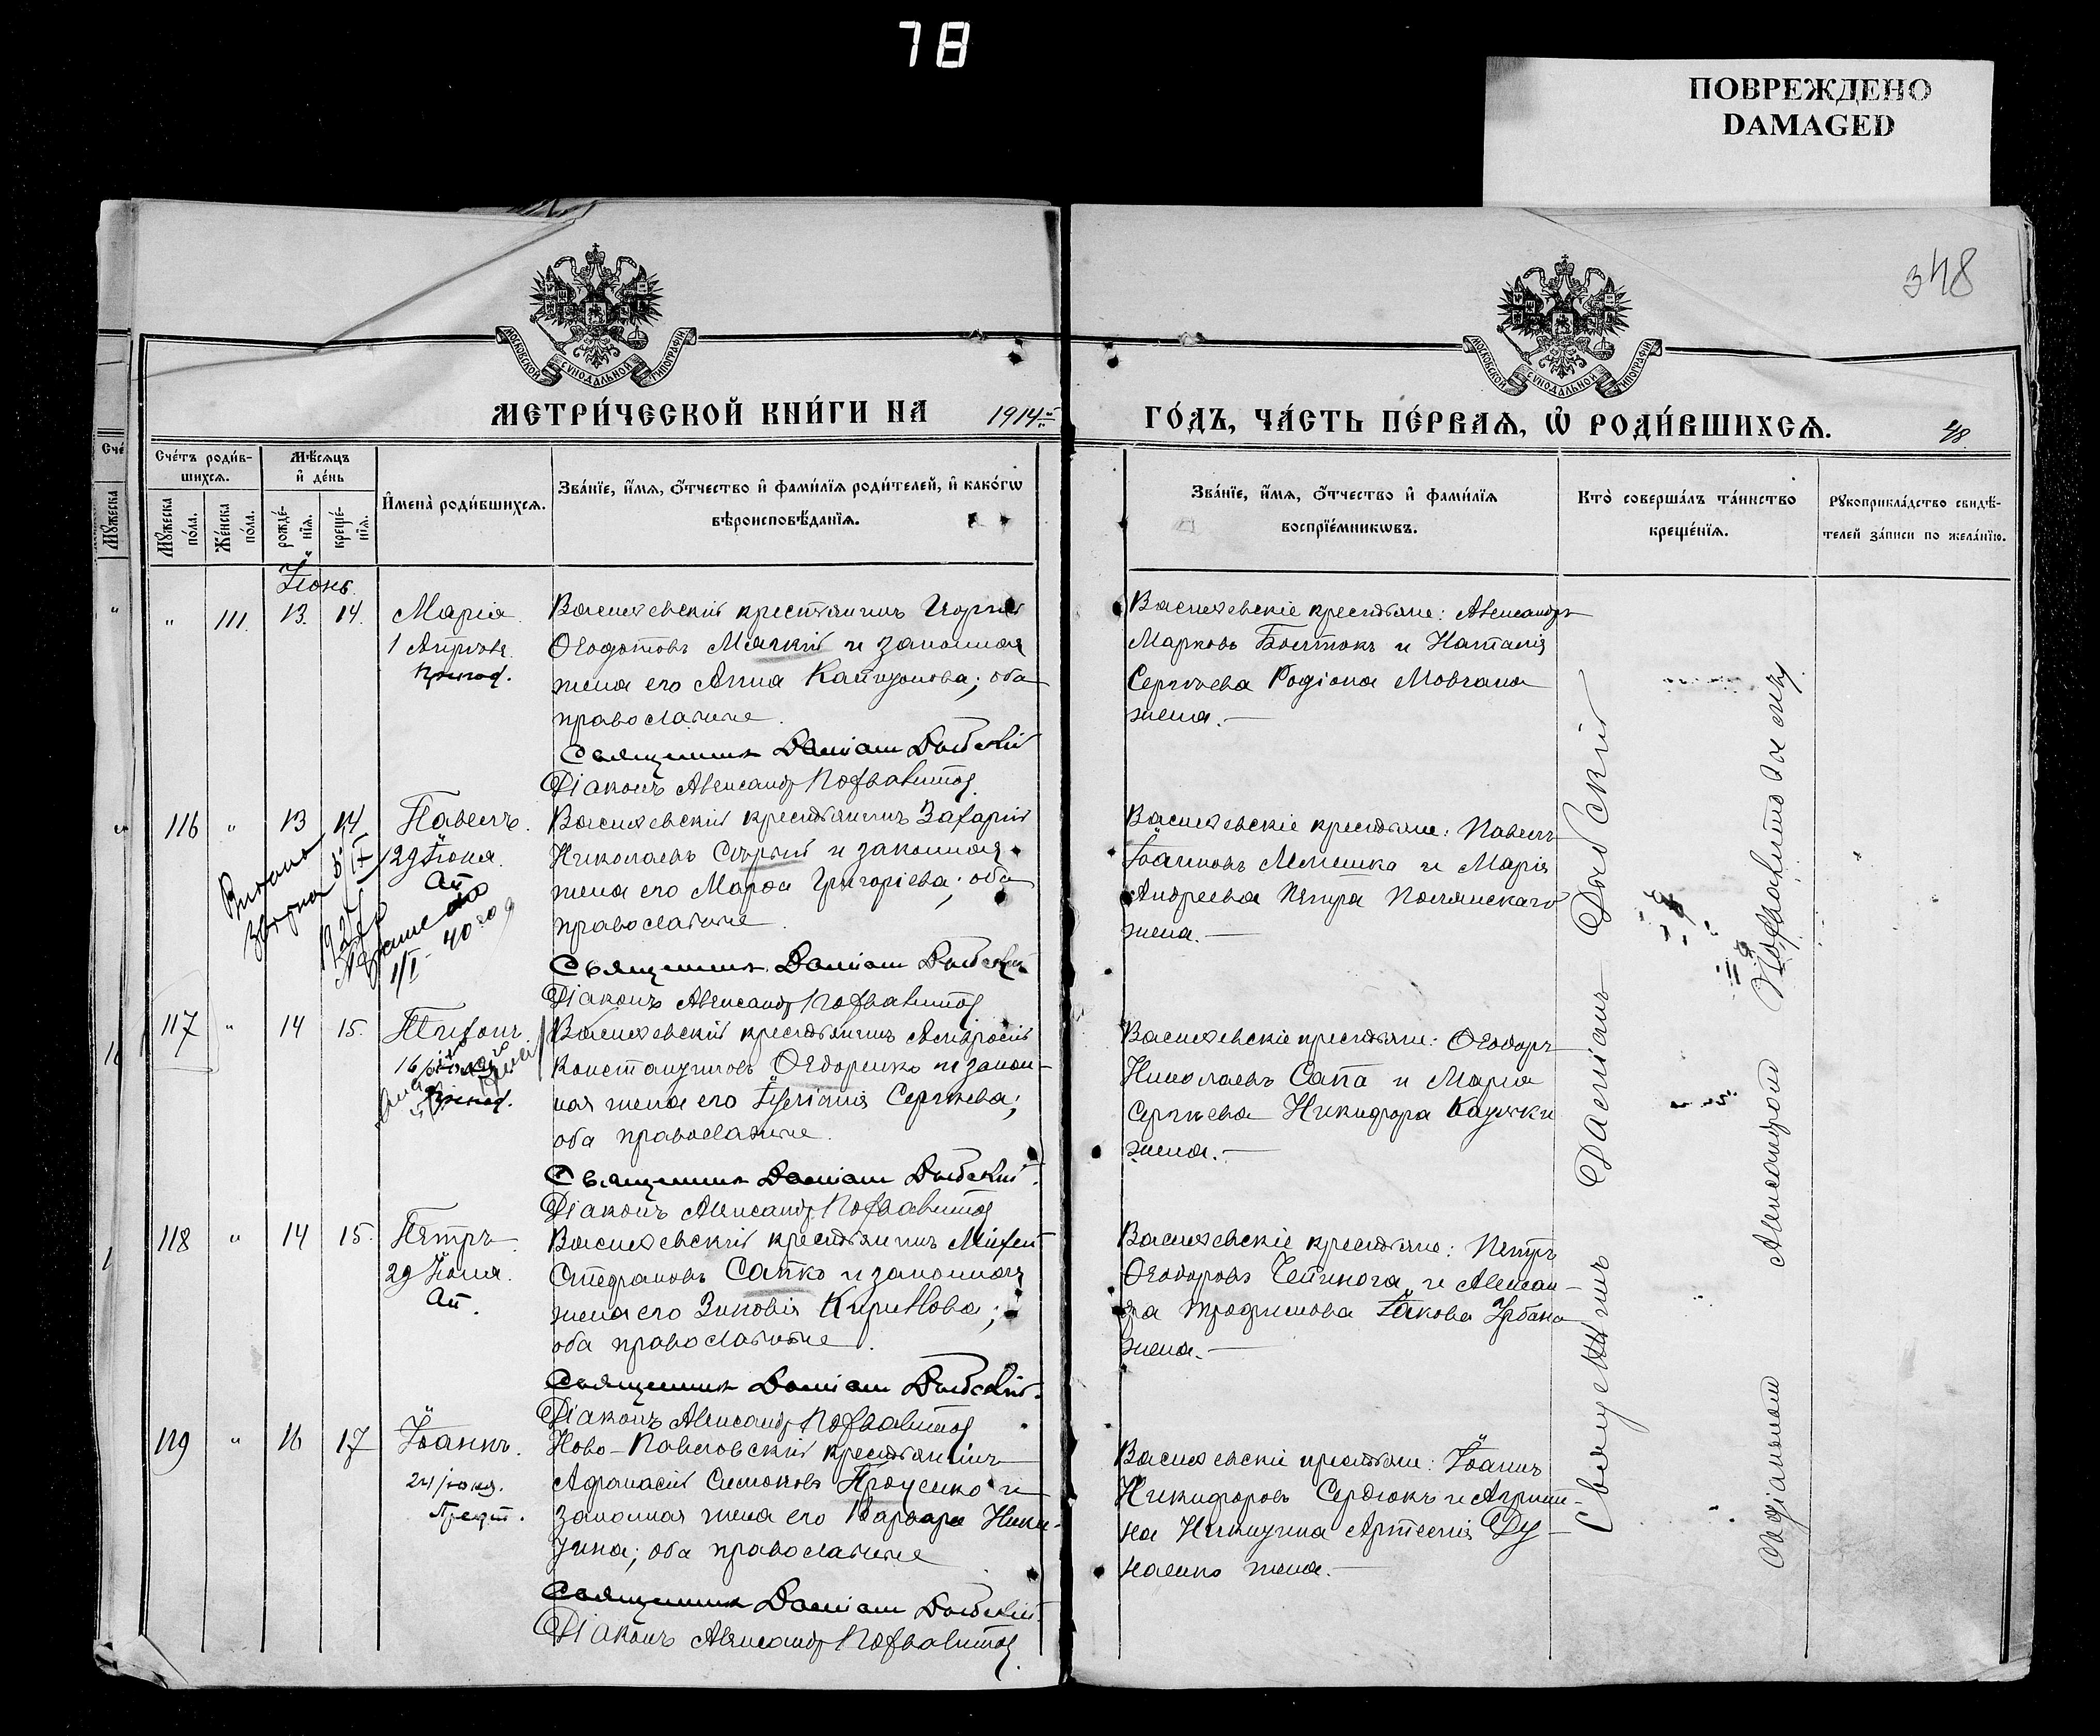 78
ПОВРЕЖДЕНО
DAMAGED
348
МОСКОВСКОЙ СУНОДАЛЬНОЙ ТИПОГРАФІИ
МОСКОВСКОЙ СУНОДАЛЬНОЙ ТИПОГРАФІИ
МЕТРИ́ЧЕСКОЙ КНИ́ГИ НА 1914 й
ГО́ДЪ, ЧА́СТЬ ПЕ́РВАѦ, Ѡ҆ РОДИ́ВШИХСѦ.
48.
Сче́тъ роди́в-
шихсѧ.
Мѣ́сѧцъ
и҆ де́нь
Мꙋ́жеска
по́ла.
Же́нска
по́ла.
рожде́-
нїѧ.
креще́-
нїѧ.
И҆мена̀ роди́вшихсѧ.
Зва́нїе, и҆́мѧ, ѻ҆́тчество и҆ фами́лїѧ роди́телей, и҆ како́гѡ
вѣроисповѣ́данїѧ.
Зва́нїе, и҆́мѧ, ѻ҆́тчество и҆ фами́лїѧ
воспрїе́мникѡвъ.
Кто̀ соверша́лъ та́инство
креще́нїѧ.
Рꙋкоприкла́дство свидѣ́-
телей за́писи по жела́нїю.
Іюнь.
" 111. 13. 14. Марія.
1 Апрѣля.
Василевскій крестьянинъ Георгій
Ѳеодотовъ Мягкій и законная
жена его Анна Капитонова; оба
православные.
Священникъ Даміанъ Дыбскій
Діаконъ Александръ Похвалитовъ
Василевскіе крестьяне: Александръ
Марковъ Болтокъ и Наталія
Сергѣева Родіона Мовчана
жена.—
116 " 13 14 Павелъ.
29 Іюня.
Ап.
Василевскій крестьянинъ Захарій
Николаевъ Сѣрый и законная
жена его Марѳа Григоріева; оба
православные
Священникъ Даміанъ Дыбскій
Діаконъ Александръ Похвалитовъ
Василевскіе крестьяне: Павелъ
Іоанновъ Лемешко и Марія
Андреева Петра Полянскаго
жена.—
117 " 14 15. Тихонъ.
16
Василевскій крестьянинъ Амвросій
Константиновъ Ѳедоренко и закон-
ная жена его Іуліанія Сергѣева;
оба православные.
Священникъ Даміанъ Дыбскій.
Діаконъ Александръ Похвалитовъ
Василевскіе крестьяне: Ѳеодоръ
Николаевъ Сапа и Марія
Сергѣева Никифора
жена.—
118 " 14 15. Петръ.
29 Іюня.
Ап.
Василевскій крестьянинъ Михей
Стефановъ Сапко и законная
жена его Зиновія Кириллова;
оба православные.
Священникъ Даміанъ Дыбскій.
Діаконъ Александръ Похвалитовъ
Василевскіе крестьяне: Петръ
Ѳеодоровъ Чепинога и Алексан-
дра Трофимова Іакова Урбана
жена.—
119 " 16 17 Іоаннъ.
24 іюня.
Предт.
Ново-Павловскій крестьянинъ
Афанасій Симоновъ Проценко и
законная жена его Варвара Ники-
тина; оба православные
Священникъ Даміанъ Дыбскій.
Діаконъ Александръ Похвалитовъ
Василевскіе крестьяне: Іоаннъ
Никифоровъ Сердюкъ и Агрипи-
на Никитина Артемія Ду-
наенко жена.—
Священникъ Даміанъ Дыбскій
съ діакономъ Александромъ Похвалитовымъ